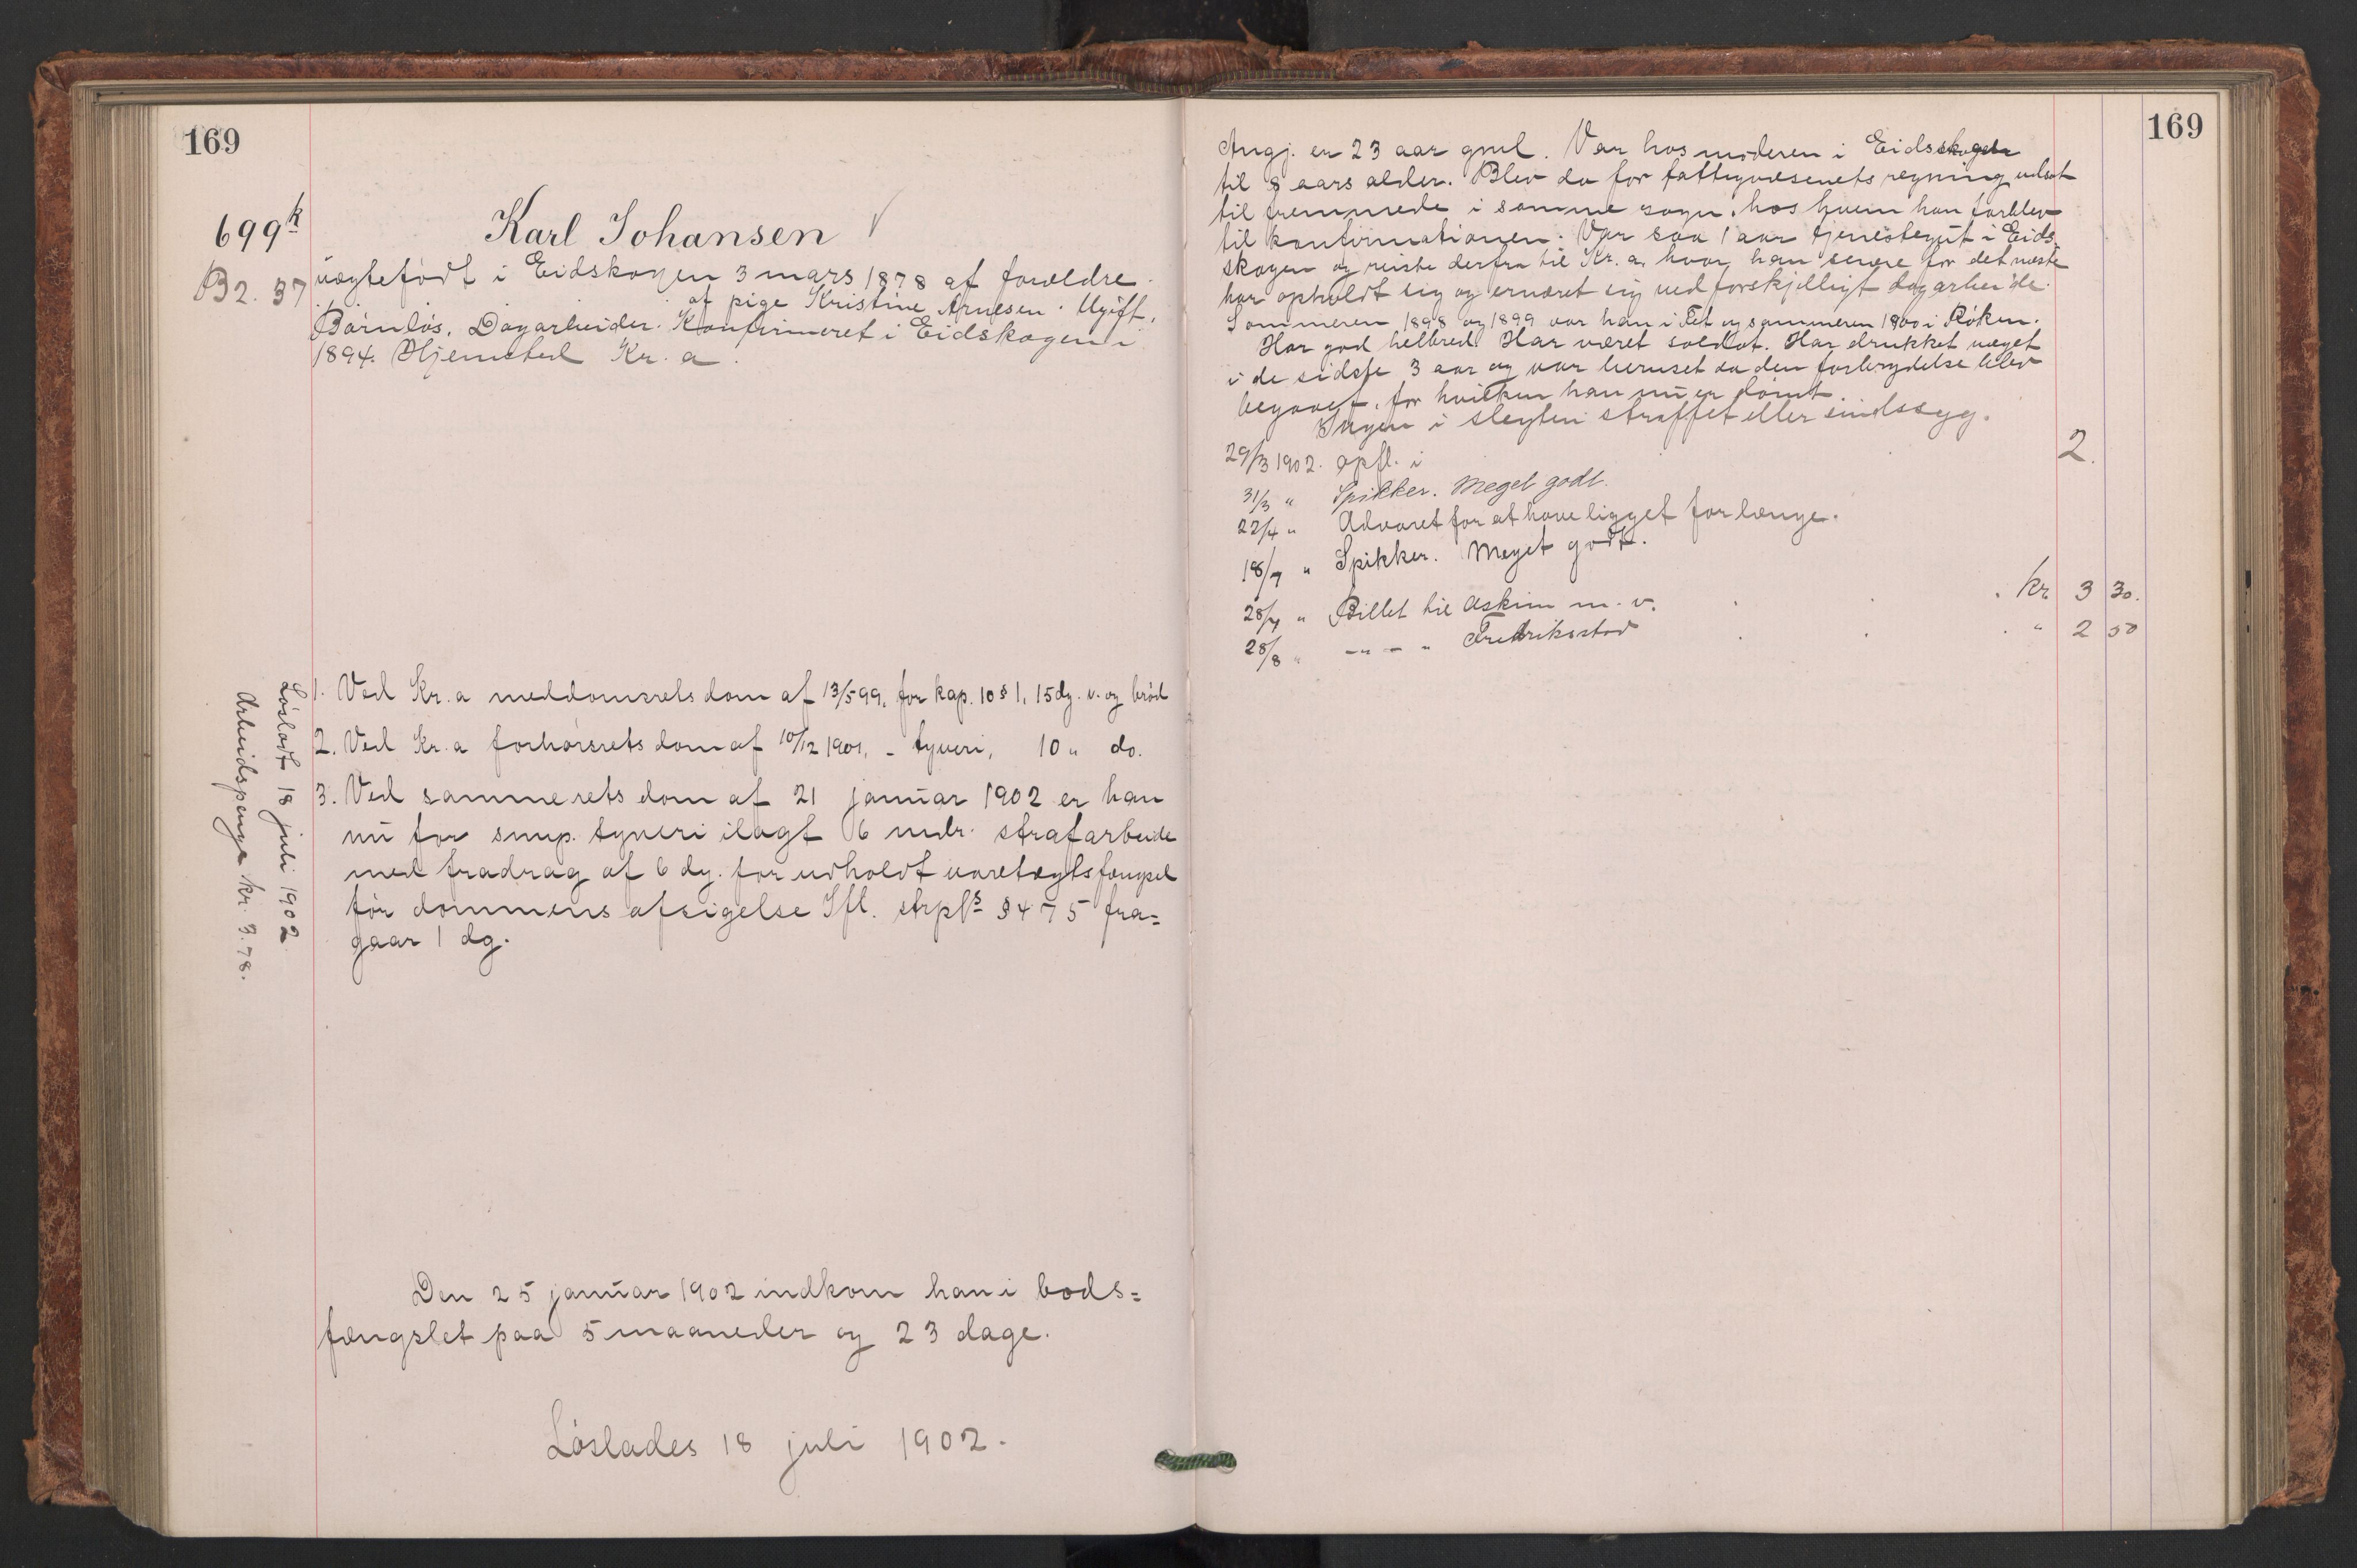 169
699k
B2. 37
Karl Johansen
uægtefödt i Eidskogen 3 mars 1878 af forældre
af pige Kristine Arnesen. Ugift.
Barnlös. Dagarbeider. Konfirmeret i Eidskogen i
1894. Hjemsted Kr.a.
1. Ved Kr.a meddomsrets dom af 13/5 99, for kap. 10 § 1, 15 dg. v. og bröd
2. Ved Kr.a forhörsrets dom af 10/12 1901, - tyveri, 10 " do.
3. Ved samme rets dom af 21 januar 1902 er han
nu for simp. tyveri ilagt 6 mdr. strafarbeide
med fradrag af 6 dg. for udholdt varetægtsfængsel
för dommens afsigelse Ifl. strpls § 475 fra=
gaar 1 dg.
Lösladt 18 juli 1902
Arbeidspenge kr. 3.78.
Den 25 januar 1902 indkom han i bods=
fængslet paa 5 maaneder og 23 dage.
Löslades 18 juli 1902.
169
Angj. er 23 aar gml. Var hos moderen i Eidskogen
til 8 aars alder. Blev da for fattigvæsenets regning udsat
til fremmede i samme sogn, hos hvem han forblev
til konfirmationen. Var saa 1 aar tjenestegut i Eids-
skogen og reiste derfra til Kr.a, hvor han senere for det meste
har opholdt sig og ernæret sig ved forskjelligt dagarbeide.
Sommeren 1898 og 1899 var han i Fet og sommeren 1900 i Röken.
Har god helbred. Har været soldat. Har drukket meget
i de sidste 3 aar og var beruset da den forbrydelse blev
begaaet, for hvilken han nu er dömt.
Ingen i slegten straffet eller sindssyg.
29/3 1902. opfl. i 2.
31/3 " Spikker. Meget godt.
22/4 " Advaret for at have ligget for længe.
18/7 " Spikker. Meget godt.
28/7 " Billet til Askim m. v. . . . kr 3 30.
28/8 " -"- " Fredriksstad . . . " 2 50